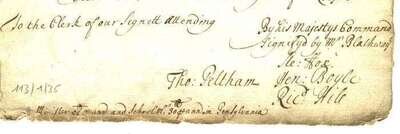 To the Clerk of our Signett attending
By his Majestys Command
Signifyed by Mr. Blathwayt
Ste: Fox
Tho: Pelham Hen: Boyle
Ric: Hill
113/1/35
Minister and School Mr. Pensilvania